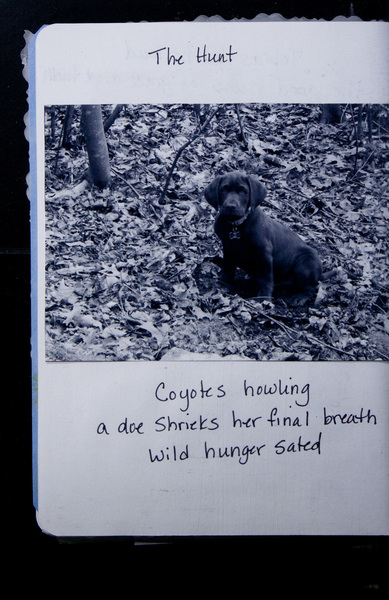 The Hunt
Coyotes howling
a doe shrieks her final breath
wild hunger sated